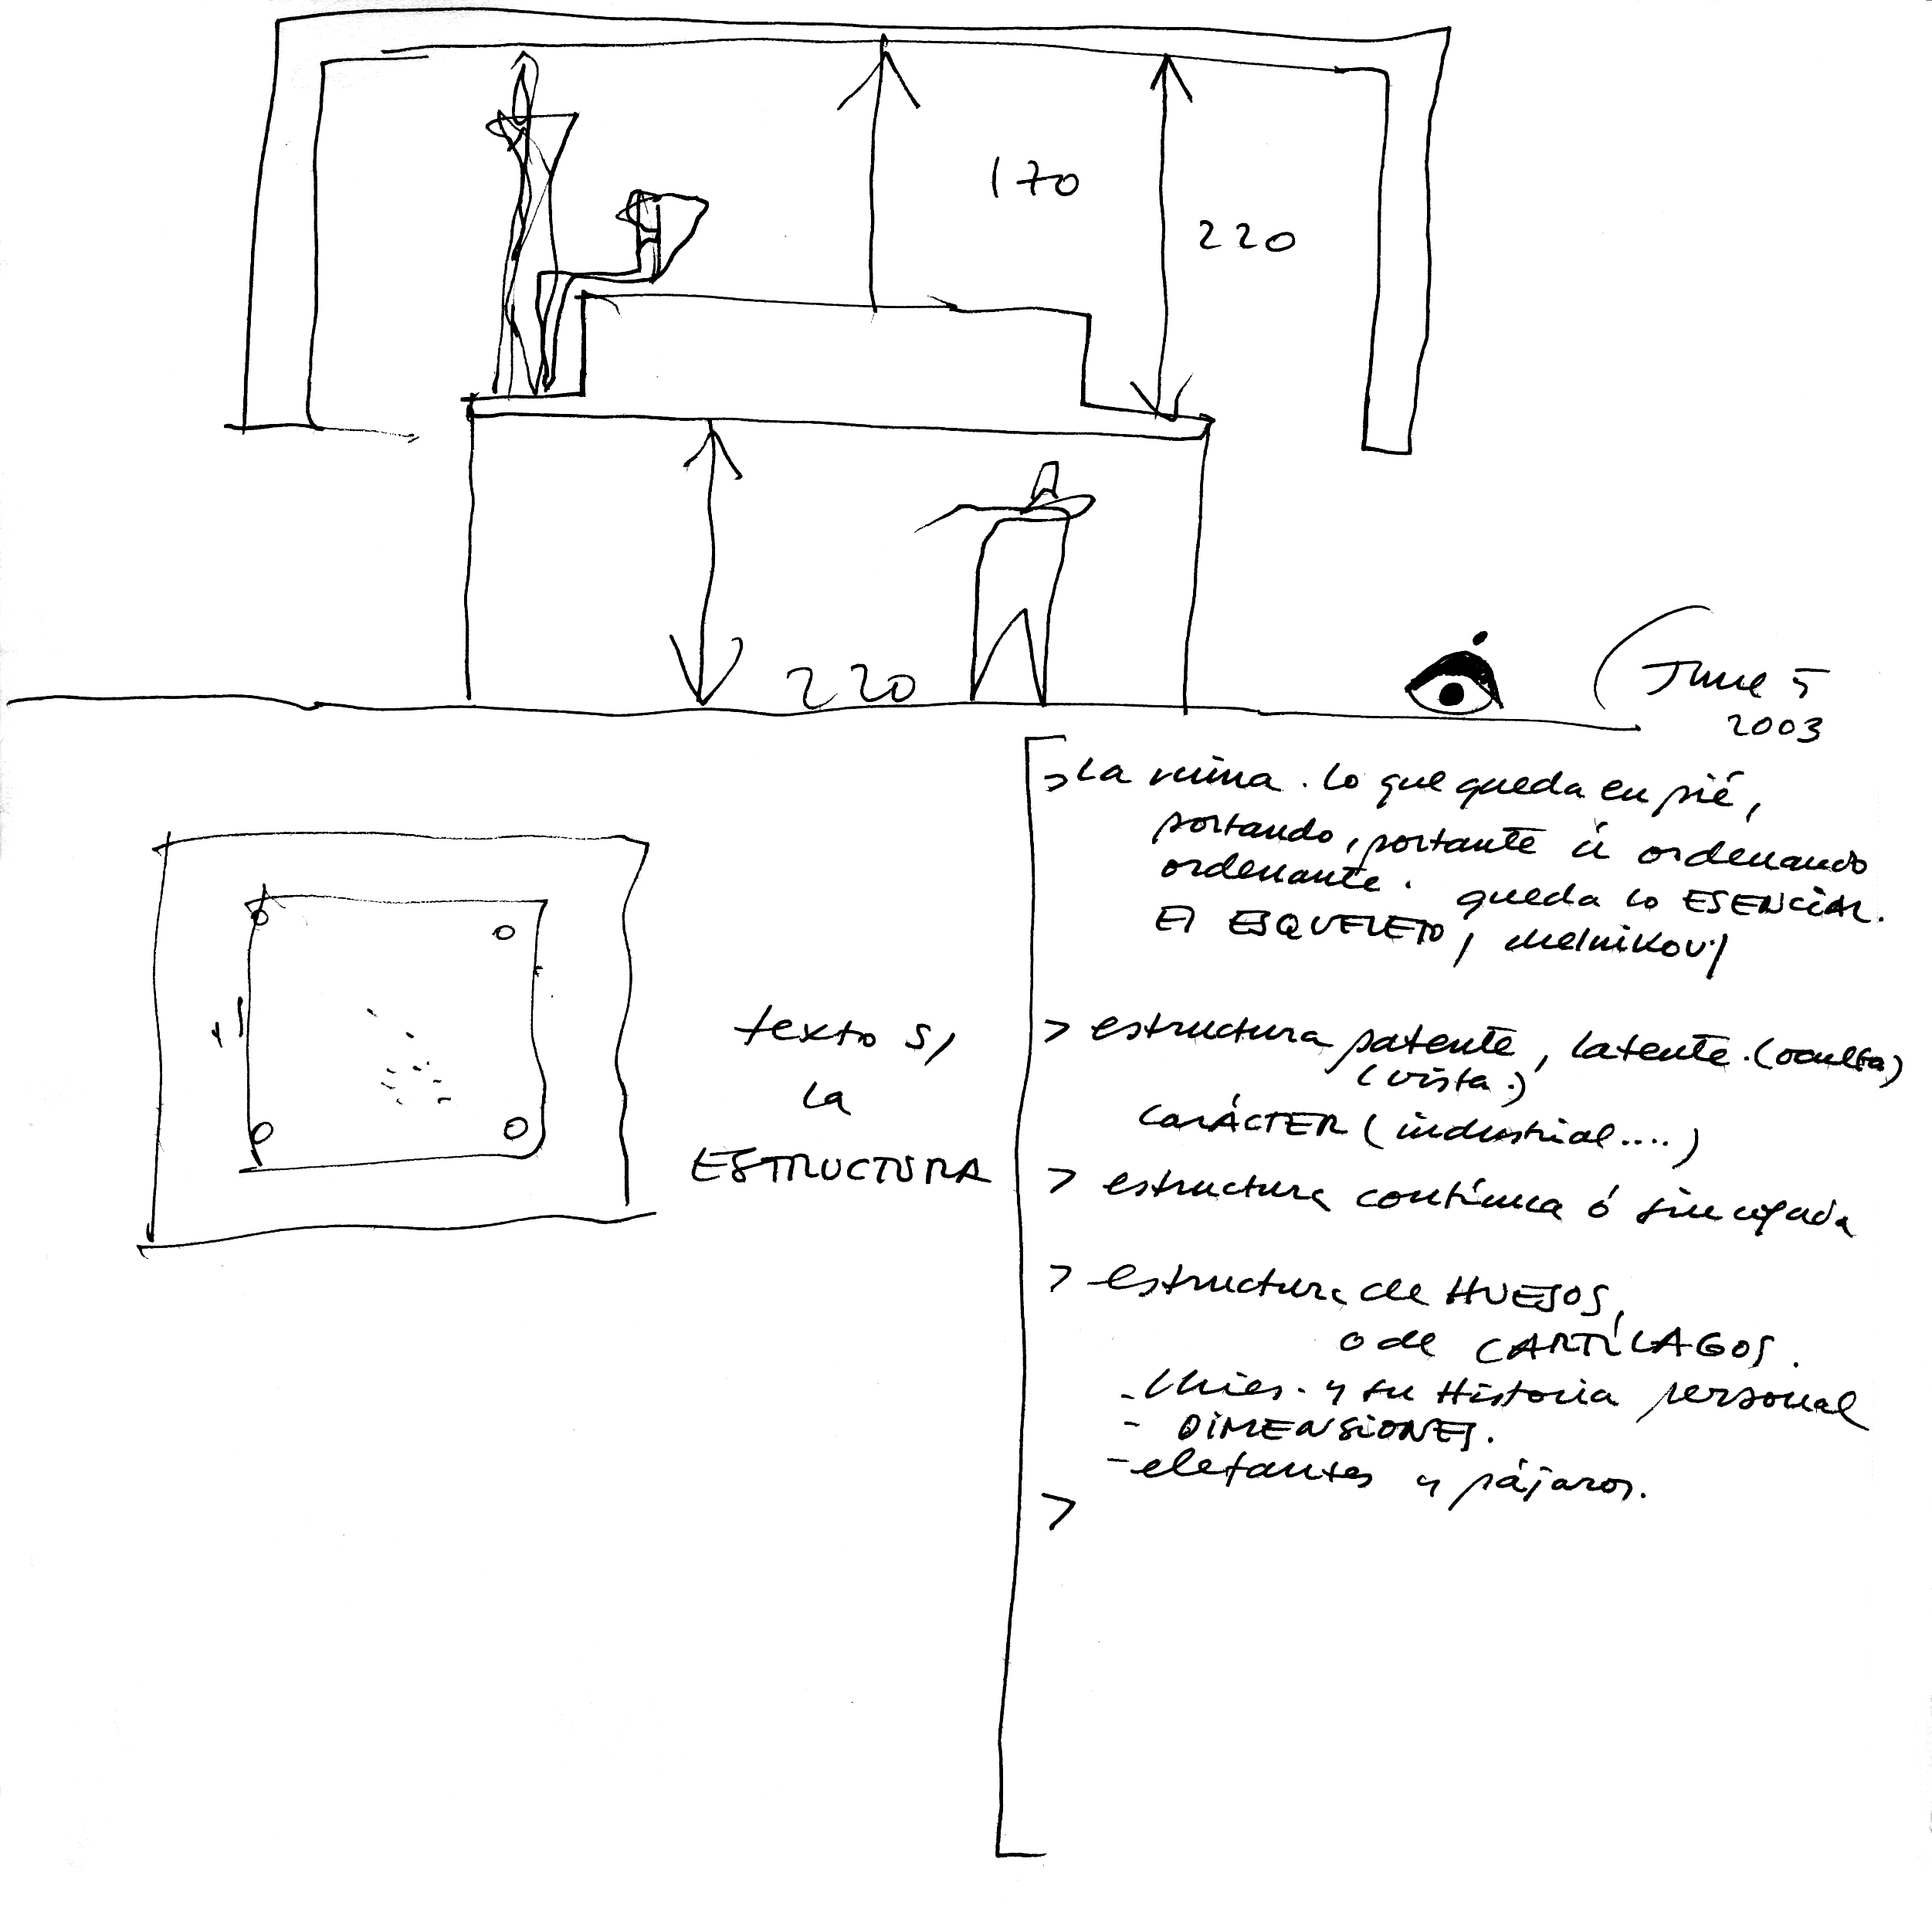 170
220
220
June 5
2003
texto s/
la
ESTRUCTURA
> La ruina. lo que queda en pié,
portando, portante ú ordenando
ordenante. queda lo ESENCIAL.
El ESQUELETO, Melnikov!
> estructura patente, latente. (oculta)
(vista.)
CARÁCTER (industrial....)
> estructura contínua ó sincopada
> estructura de HUESOS,
o de CARTÍLAGOS.
- Mies. y su Historia personal
- DIMENSIONES.
- elefantes y pájaros.
>